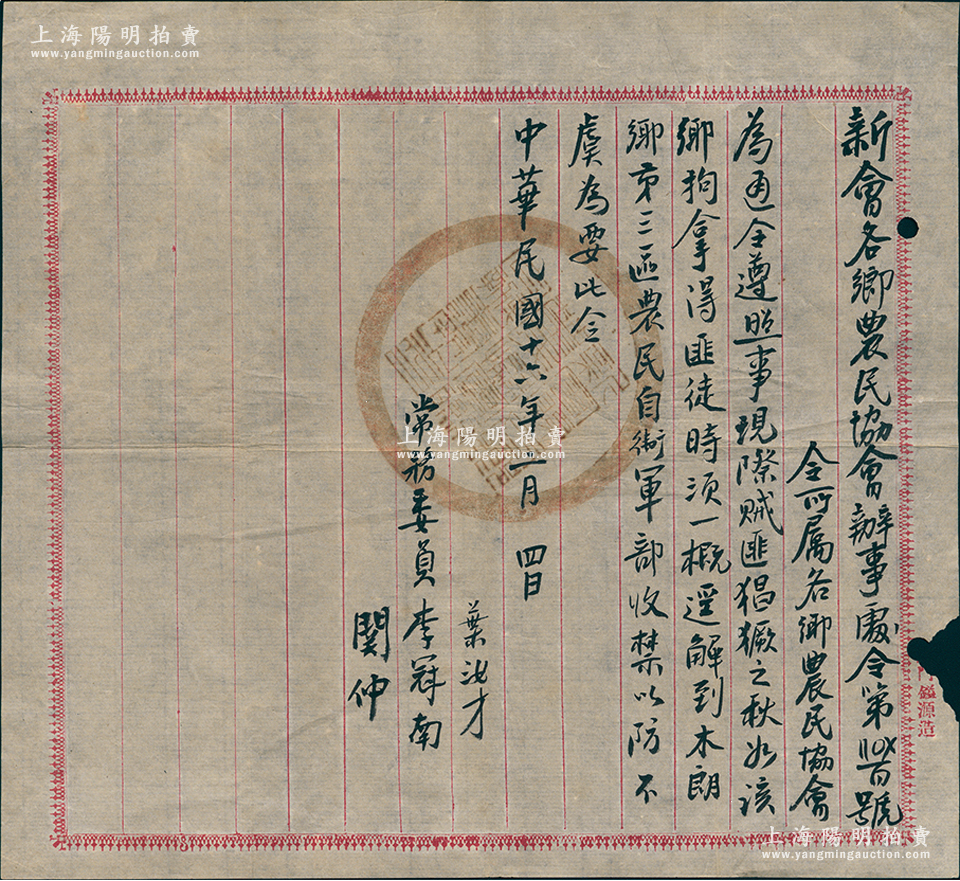 新會各鄉農民協會辦事處令第 號
令所屬各鄉農民協會
為通令遵照事現際賊匪猖獗之秋如該
鄉拘拿得匪徒時須一概逕解到木朗
鄉第三區農民自衛軍部收禁以防不
虞為要此令
中華民國十六年二月 四日
葉汝才
常務委員李冠南
関仲
鎰源造
上海陽明拍賣
www.yangmingauction.com
上海陽明拍賣
www.yangmingauction.com
上海陽明拍賣
www.yangmingauction.com